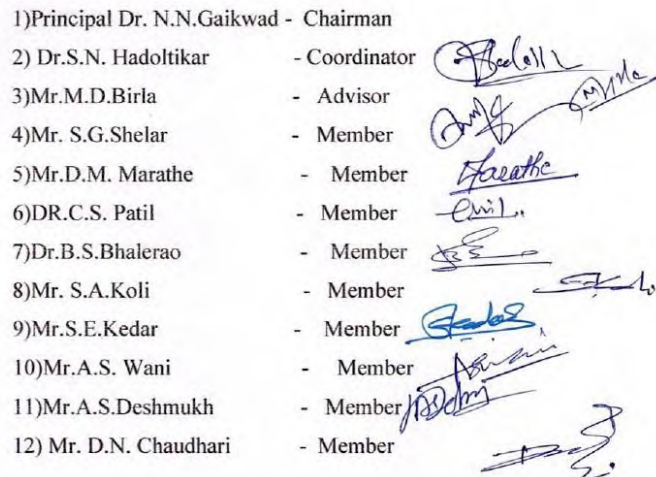 1)Principal Dr. N.N.Gaikwad - Chairman
2) Dr.S.N. Hadoltikar - Coordinator
3)Mr.M.D.Birla - Advisor
4)Mr. S.G.Shelar - Member
5)Mr.D.M. Marathe - Member Marathe
6)DR.C.S. Patil - Member
7)Dr.B.S.Bhalerao - Member
8)Mr. S.A.Koli - Member
9)Mr.S.E.Kedar - Member
10)Mr.A.S. Wani - Member
11)Mr.A.S.Deshmukh - Member
12) Mr. D.N. Chaudhari - Member